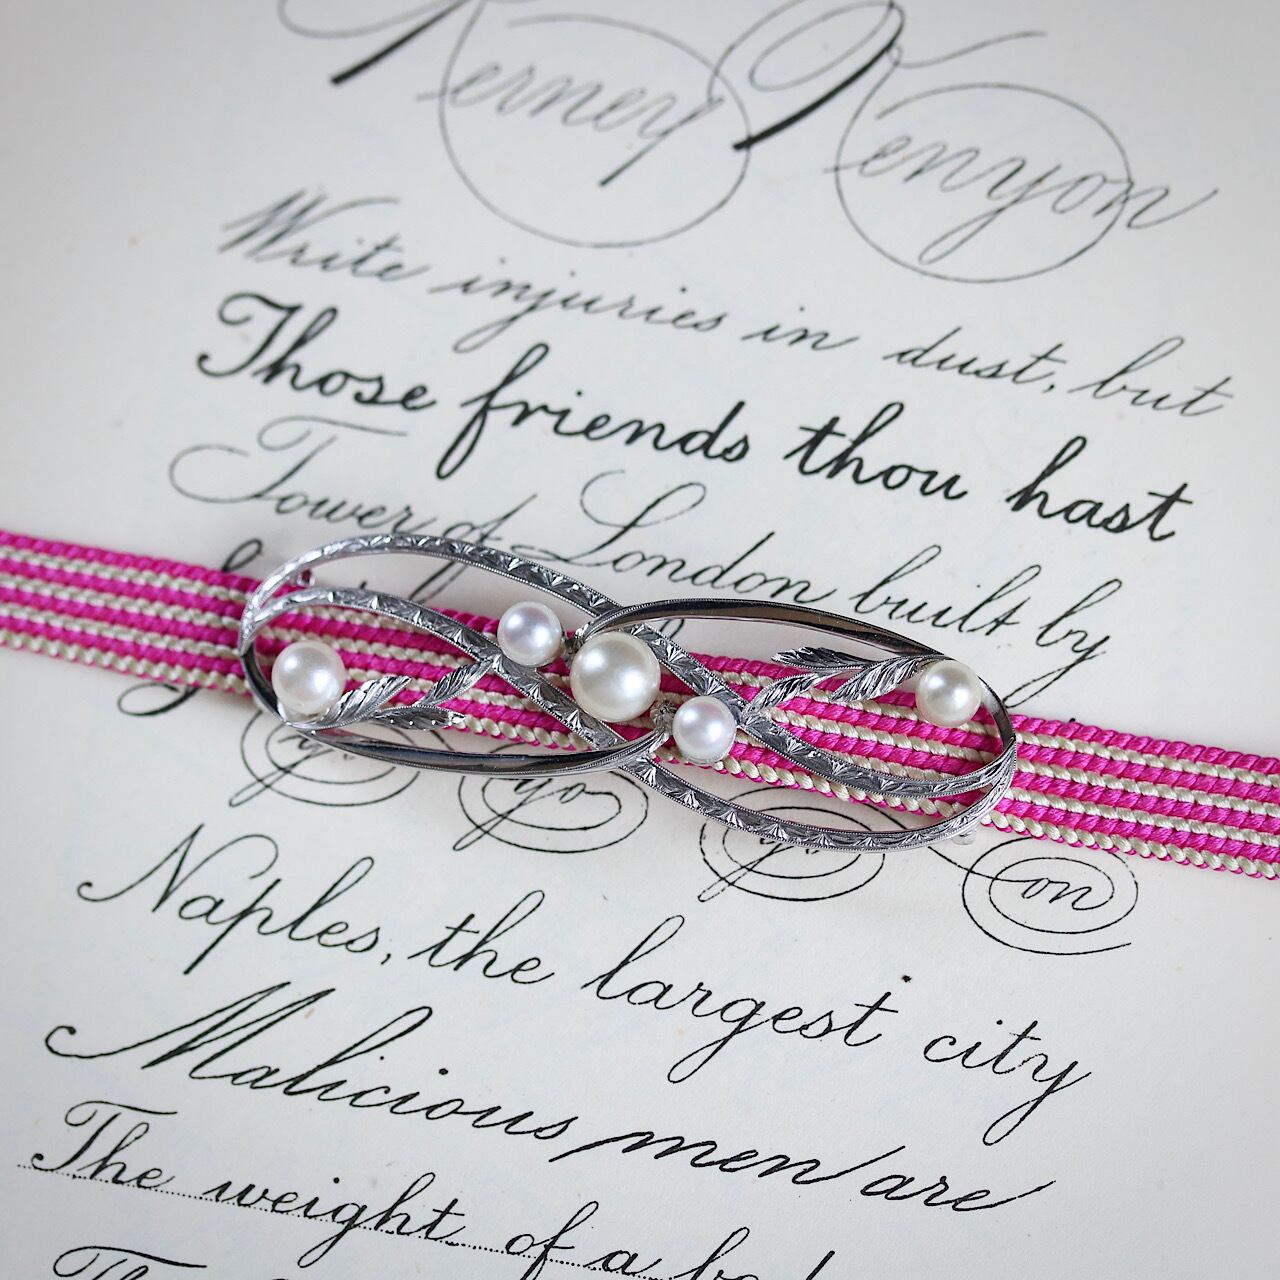 Kerney Kenyon
Write injuries in dust, but
Those friends thou hast
Tower of London built by
yo yo yo on
Naples, the largest city
Malicious men are
The weight of a